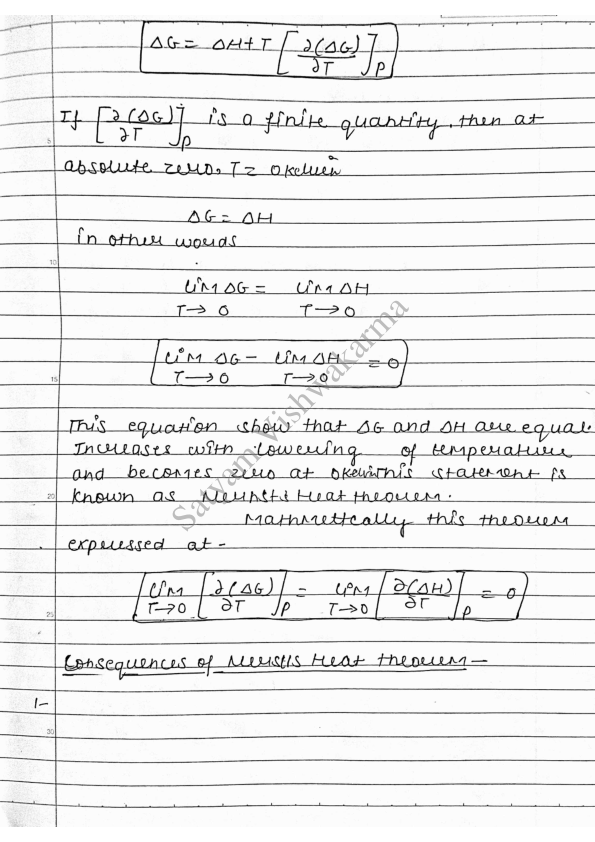 ΔG = ΔH + T [∂(ΔG)/∂T]P
If [∂(ΔG)/∂T]P is a finite quantity, then at
5
absolute zero, T = 0 kelvin
ΔG = ΔH
in other words
10
lim ΔG = lim ΔH
T→0 T→0
lim ΔG - lim ΔH = 0
T→0 T→0
15
This equation show that ΔG and ΔH are equal
Increases with lowering of temperature
and becomes zero at 0kelvin This statement is
20
known as Nernsts Heat theorem.
Mathmettcally this theorem
expressed at -
lim [∂(ΔG)/∂T]P = lim [∂(ΔH)/∂T]P = 0
T→0 T→0
25
Consequences of Nernsts Heat theorem -
1-
30
Satyam Vishwakarma